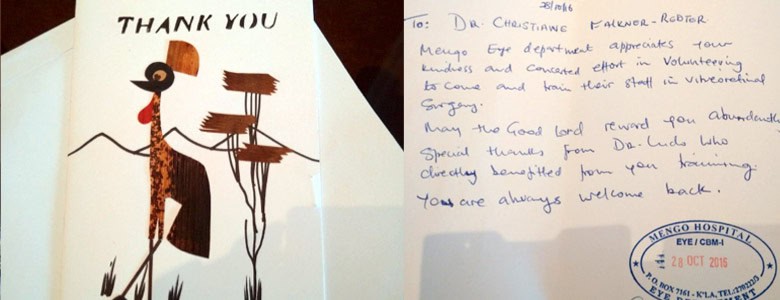 THANK YOU
28/10/16
To: DR. CHRISTIANE FALKNER-RADLER
Mengo Eye department appreciates your
kindness and concerted effort in volunteering
to come and train their staff in vitreoretinal
Surgery.
May the Good Lord reward you abundantly
Special thanks from DR. Ludo who
directly benefitted from your training.
You are always welcome back.
MENGO HOSPITAL
EYE / CBM-I
28 OCT 2016
P.O. BOX 7161 - K'LA, TEL:
EYE DEPARTMENT